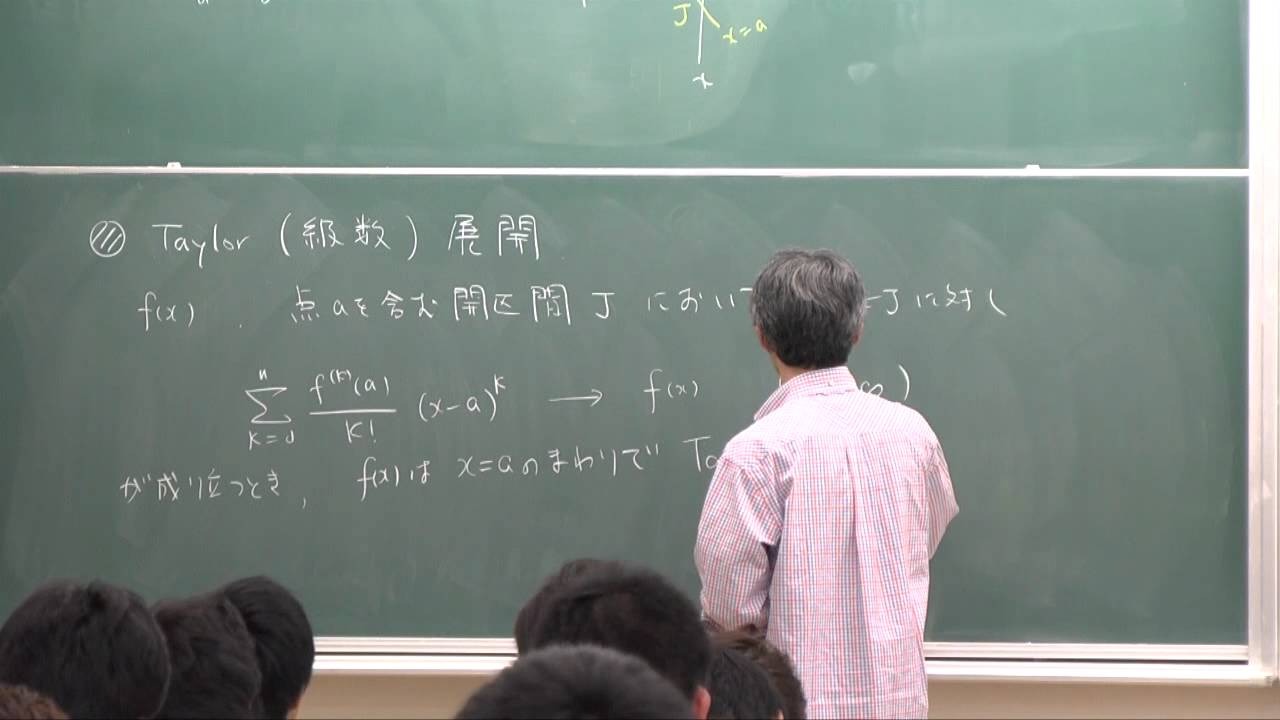 J
x=a
x
Taylor (級数) 展開
f(x) . 点aを含む開区間 J において J に対し
n
∑ f^(k)(a)/k! (x-a)^k → f(x) ∞)
k=0
が成り立つとき, f(x)は x=aのまわりで